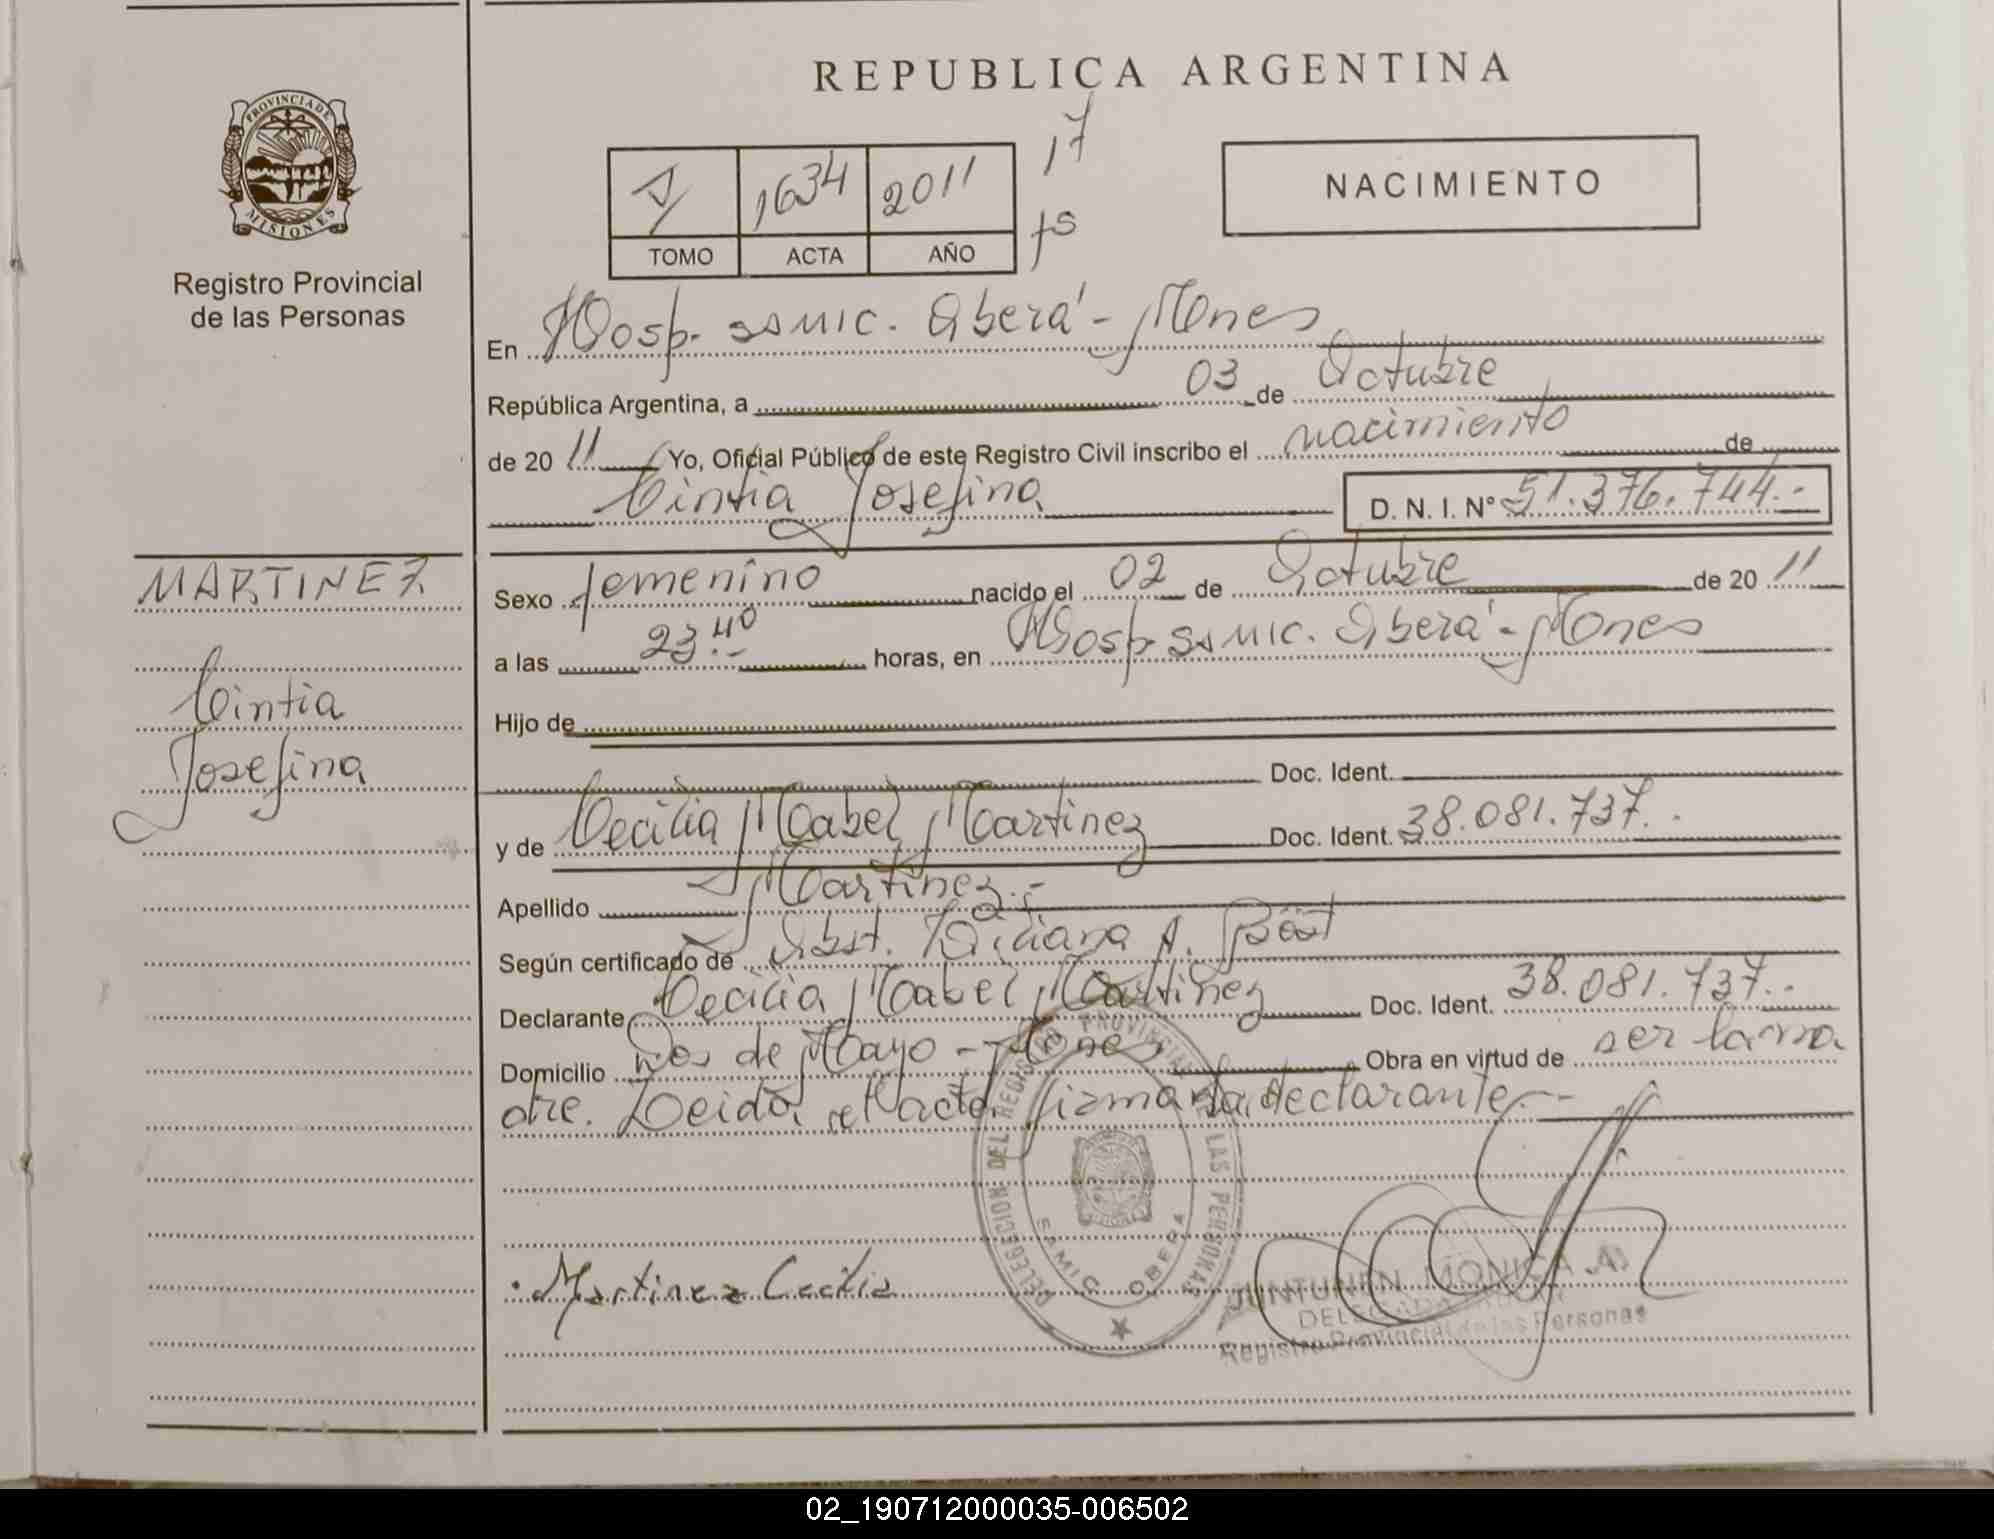 REPUBLICA ARGENTINA
PROVINCIA DE
MISIONES
Registro Provincial
de las Personas
1634 2011 17
TOMO ACTA AÑO fs
NACIMIENTO
En Hosp. SAMIC. Oberá - Mnes
República Argentina, a 03 de Octubre
de 20 11 Yo, Oficial Público de este Registro Civil inscribo el nacimiento de
Cintia Josefina D. N. I. Nº 51.376.744.-
MARTINEZ
Cintia
Josefina
Sexo femenino nacido el 02 de Octubre de 20 11
a las 23.40 horas, en Hosp SAMIC. Oberá - Mnes
Hijo de
Doc. Ident.
y de Cecilia Mabel Martinez Doc. Ident. 38.081.737..
Apellido Martinez.-
Según certificado de Obst. A.
Declarante Cecilia Mabel Martinez Doc. Ident. 38.081.737..
Domicilio Dos de Mayo - Mnes Obra en virtud de ser la ma
dre. Leida el acta, firma la declarante.-
Martinez Cecilia
DELEGACION DEL REGISTRO PROVINCIAL DE LAS PERSONAS
SAMIC OBERA
JUNTUNEN MONICA A.
DELEGADA
Registro Provincial de las Personas
02_190712000035-006502